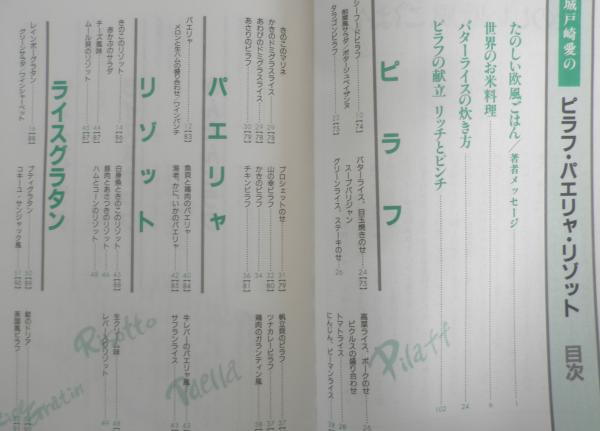 城戸崎愛の
ピラフ・パエリャ・リゾット 目次
たのしい欧風ごはん/著者メッセージ 1
世界のお米料理 6
バターライスの炊き方 24
ピラフの献立 リッチとピンチ 102
ピラフ
シーフードピラフ
和風夏サラダ/ポタージュペイザンヌ 10[74]
タラゴンピラフ 12[75]
バターライス、目玉焼きのせ
スープパリジャン 24[73]
グリーンライス、ステーキのせ 26
高菜ライス、ポークのせ
ピクルスの盛り合わせ
トマトライス 28
にんじん、ピーマンライス
きのこのマリネ
かきのドミグラスライス 29[78]
あわびのドミグラスライス 29[78]
あさりのピラフ 30[79]
ブロシェットのせ 31[79]
山の幸ピラフ 32[80]
かきのピラフ 34
チキンピラフ 36[81]
帆立貝のピラフ 37
ツナカレーピラフ
鶏肉のガランティン風 38
Pilaff
パエリャ
パエリャ
メロンと生ハムの盛り合わせ/ワインパンチ 17[83]
魚貝と鶏肉のパエリャ 40[84]
海老、かに、いかのパエリャ 42[83]
キレバーのパエリャ風 43
サフランライス 43
Paella
リゾット
きのこのリゾット 14[86]
赤かぶのサラダ
チーズ風味 44[87]
ムール貝のリゾット 45
白身魚ときのこのリゾット 45[89]
豚肉とあさつきのリゾット 46
ハムとコーンのリゾット 48
生クリーム味 48
レバースのリゾット 49
Risotto
ライスグラタン
レインボーグラタン
グリーンサラダ/ワインシャーベット 18[89]
プティグラタン 50[89]
コキーユ・サンジャック風 51[90]
鮭のドリア
英国風ピラフ
Gratin